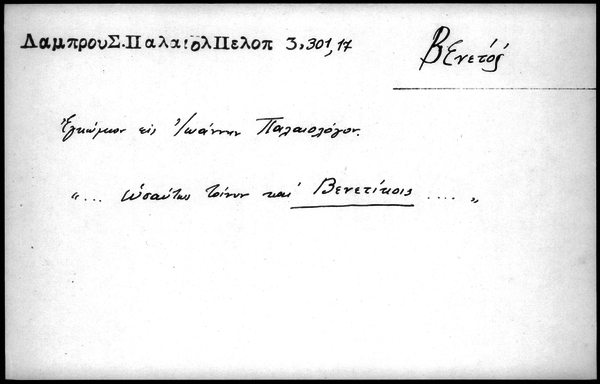 ΛαμπρουΣ.ΠαλαιολΠελοπ 3,301,17
Βενετός
Ἐγκώμιον εἰς Ἰωάννην Παλαιολόγον.
"... ὡσαύτως τοίνυν καὶ Βενετίκοις .... "